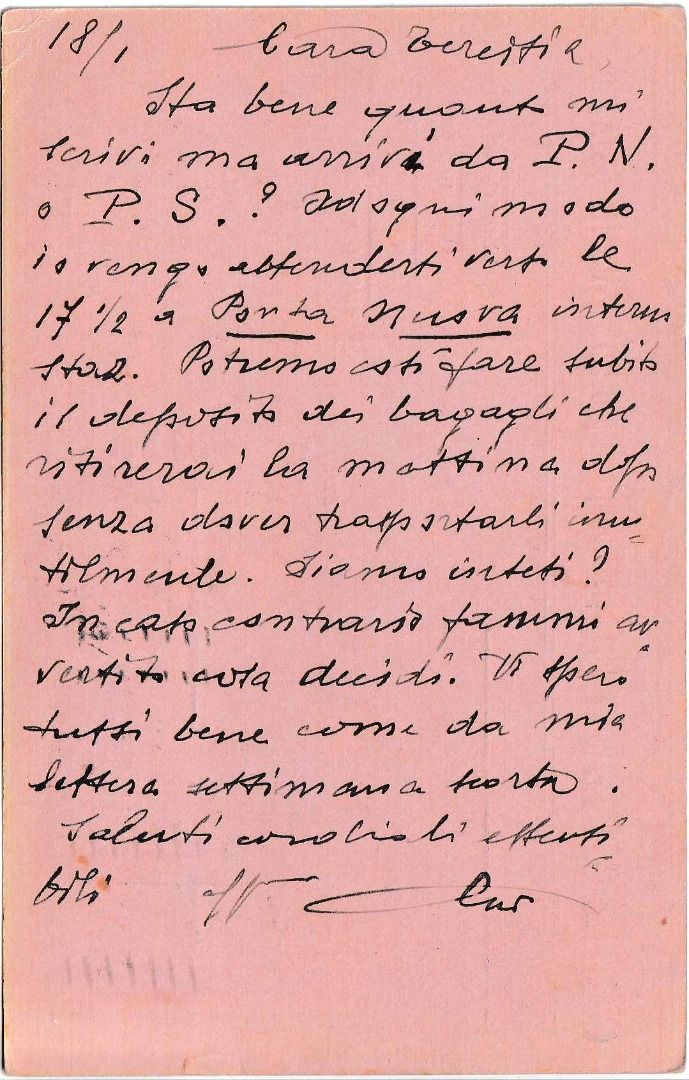 18/1 Cara Teresita,
Sta bene quanto mi
scrivi ma arrivi da P. N.
o P. S. ? Ad ogni modo
io vengo attenderti verso le
17 1/2 a Porta Nuova interno
staz. Potremo così fare subito
il deposito dei bagagli che
ritirerai la mattina dopo
senza dover trasportarli inu-
tilmente. Siamo intesi?
In caso contrario fammi av
vertito cosa decidi. Vi spero
tutti bene come da mia
lettera settimana scorsa.
Saluti cordiali estensi
bili aff.